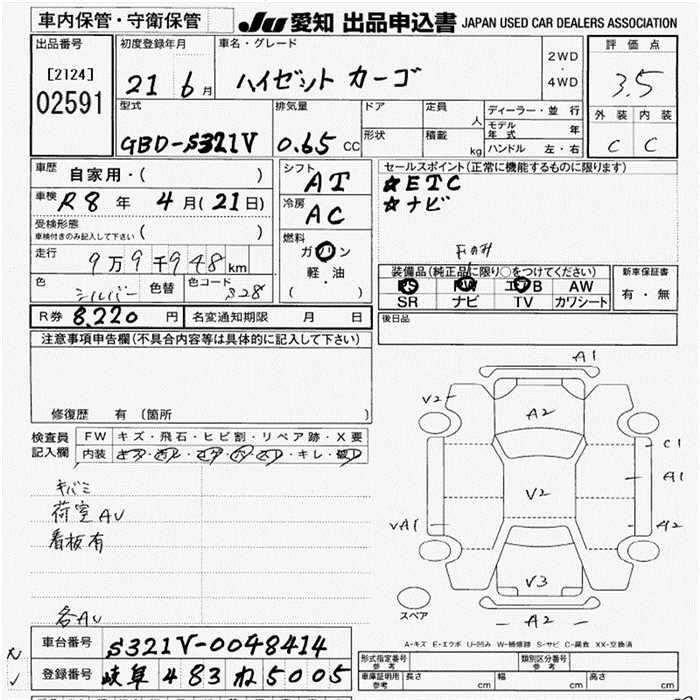 車内保管・守衛保管
JU 愛知 出品申込書 JAPAN USED CAR DEALERS ASSOCIATION
出品番号
[2124]
02591
初度登録年月
21 6月
車名・グレード
ハイゼット カーゴ
2WD
・
4WD
評価点
3.5
外装 内装
C C
型式
GBD-S321V
排気量
0.65 CC
ドア
形状
定員
人
積載
kg
ディーラー・並行
モデル年式 年
ハンドル 左・右
車歴
自家用・( )
車検
R8年 4月(21日)
受検形態
車検付きのみ記入して下さい ( )
走行
9万9千948km
色
シルバー 色替
色コード
S28
シフト
AT
冷房
AC
燃料
ガソリン
・
軽油
( )
セールスポイント(正常に機能するものに限ります)
☆ETC
☆ナビ
装備品(純正品に限り○をつけてください)
PS PW エアB AW
SR ナビ TV カワシート
新車保証書
有・無
R券 8,220 円
名変通知期限 月 日
後日品
注意事項申告欄(不具合内容等は具体的に記入して下さい)
修復歴 有 (箇所 )
検査員記入欄
FW キズ・飛石・ヒビ割・リペア跡・X要
内装 キズ・汚レ・コゲ・穴・スレ・キレ・破レ
キバミ
荷室AU
看板有
各AU
A1
V2
A2
C1
A1
V2
VA1
A2
V3
スペア
A2
A-キズ E-エクボ U-凹み W-補修跡 S-サビ C-腐食 XX-交換済
車台番号 S321V-0048414
登録番号 岐阜 483 ね 5005
形式指定番号
参考
類別区分番号
参考
車庫証明用
参考
長さ cm 幅 cm 高さ cm